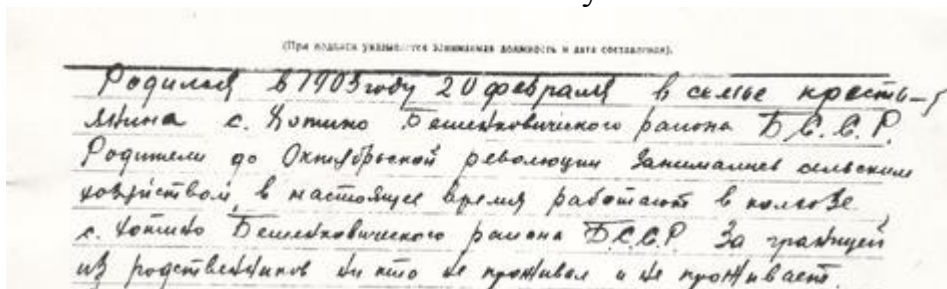 (При подписи указывается занимаемая должность и дата составления).
Родился в 1903 году 20 февраля в семье кресть-
янина с. Хотино Бешенковического района Б.С.С.Р.
Родители до Октябрьской революции занимались сельским
хозяйством, в настоящее время работают в колхозе
с. Хотино Бешенковического района Б.С.С.Р. За границей
из родственников ни кто не проживал и не проживает.